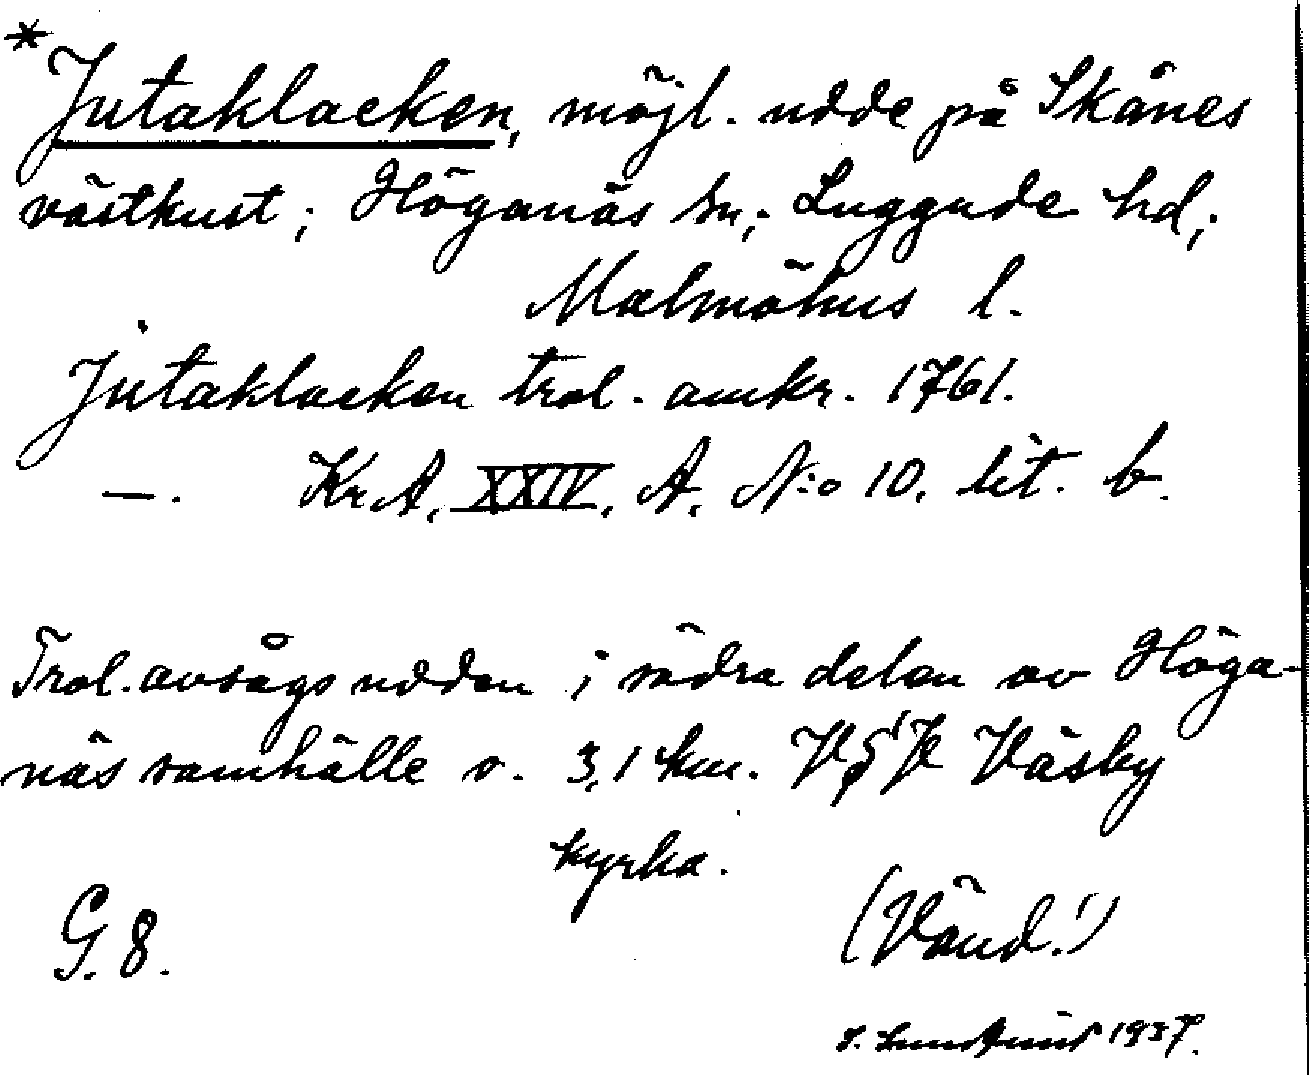 *Jutaklacken, möjl. udde på Skånes
västkust; Höganäs sn; Luggude hd;
Malmöhus l.
Jutaklacken trol. omkr. 1761.
—. Kr.A. XXIV. A. N:o 10. lit. b.
Trol. avsågs udden i södra delen av Höga-
näs samhälle o. 3,1 km. Väsby
kyrka.
G. 8. (Vänd!)
1937.